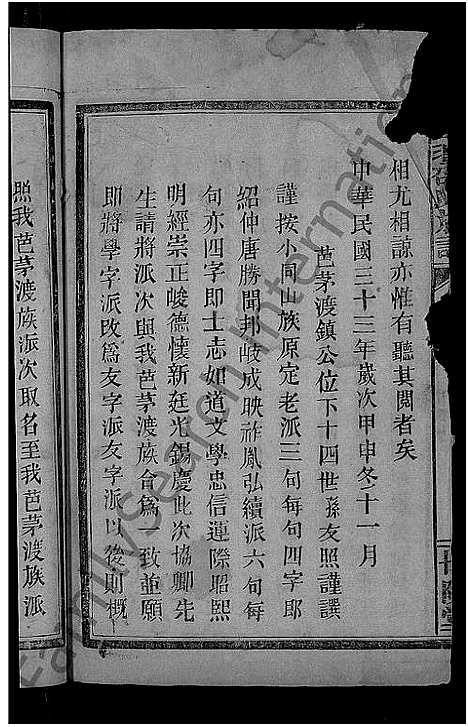 相尤相諒亦惟有聽其閱者矣
中華民國三十三年歲次甲申冬十一月
芭茅渡鎮公位下十四世孫友照謹譔
謹按小同山族原定老派三句每句四字即
紹仲唐勝開邦岐成映祚胤弘續派六句每
句亦四字即士志如道文學忠信連際昭熙
明經崇正峻德懷新廷光錫慶此次協卿先
生請將派次與我芭茅渡族會爲一致並願
即將學字派改爲友字派友字派以後則概
照我芭茅渡族派次取名至我芭茅渡族派
FamilySearch International